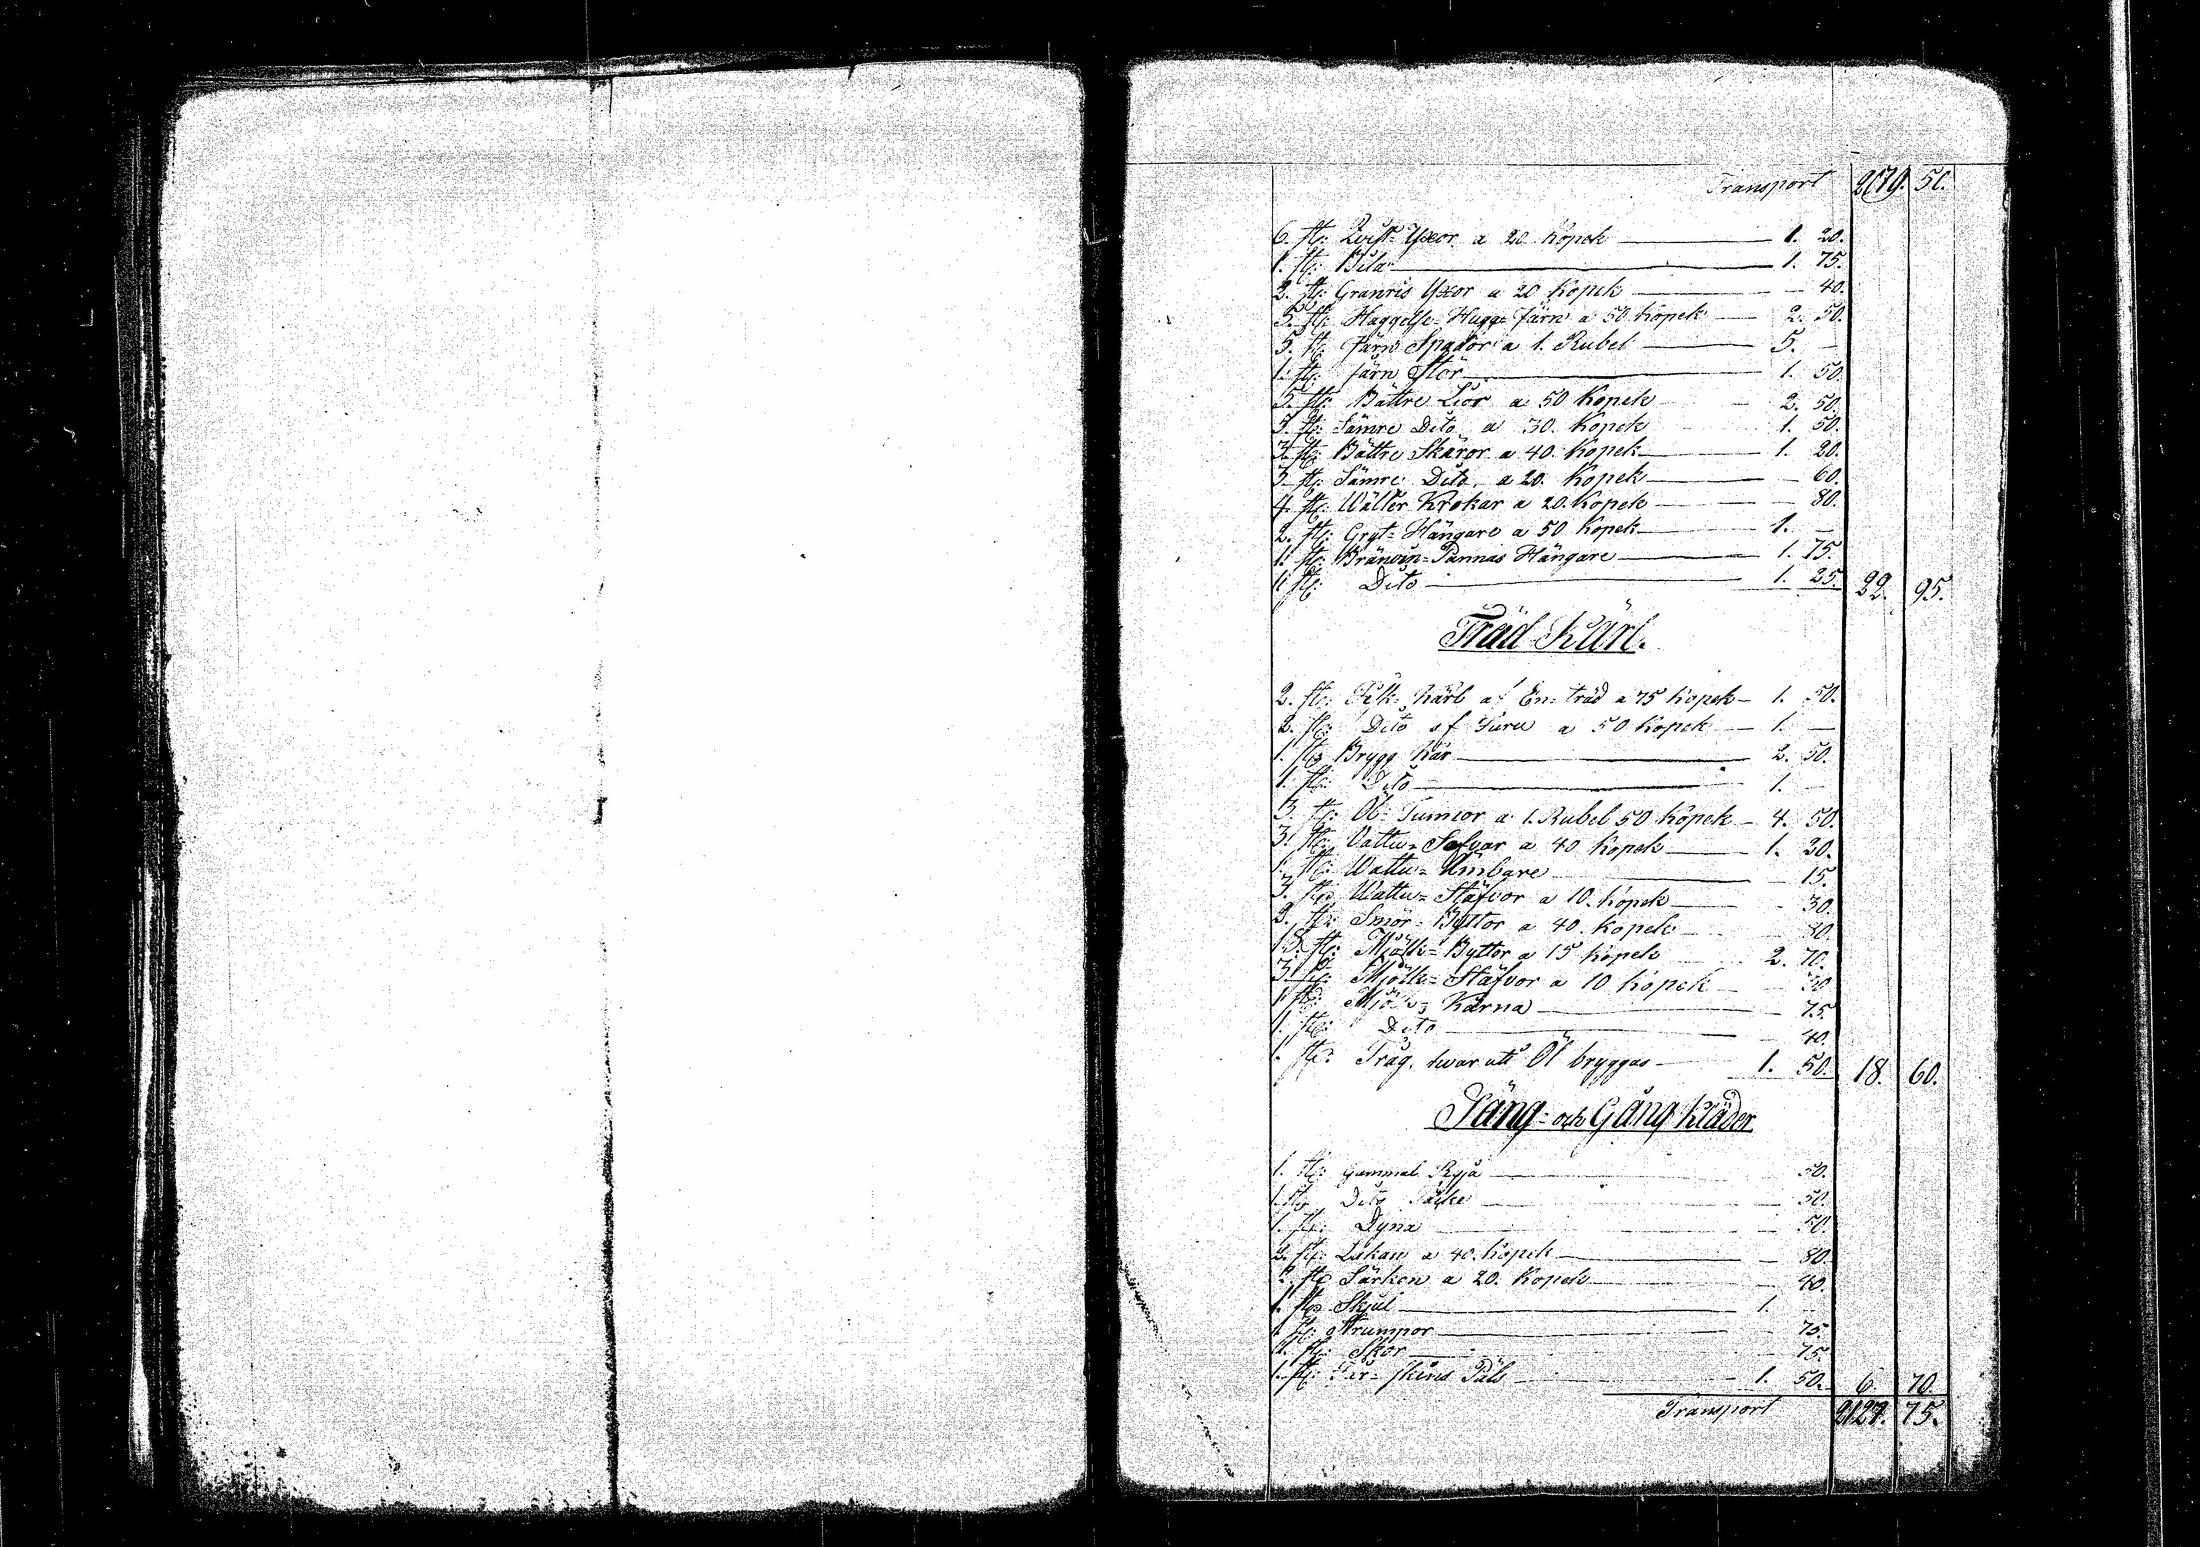 Transport 2079. 50.
6. st: Qvist-Yxor a 20 Kopek 1. 20.
1. st: Bila 1. 75.
2. st: Granris Yxor a 20 Kopek 40.
5. st: Haggelse-Hugg-järn a 50 Kopek 2. 50.
5. st: Järn Spador a 1. Rubel 5.
1. st: järn Stör 1. 50.
5. st: Bättre Lior a 50 Kopek 2. 50.
5. st: Sämre Dito a 30. Kopek 1. 50.
3. st: Bättre Skäror a 40. Kopek 1. 20.
3. st: Sämre Dito a 20. Kopek 60.
4. st: Wälter Krokar a 20. Kopek 80.
2. st: Gryt-Hängare a 50 Kopek 1.
1. st: Bränvin-Pannas Hängare 1. 75.
1. st: Dito 1. 25. 22. 95.
Träd Kärl.
2. st: kärl af En-träd a 75 Kopek 1. 50.
2. st: Dito af Furu a 50 Kopek 1.
1. st: Brygg Kar 2. 50.
1. st: Dito 1.
3. st: Öl-Tunnor a 1. Rubel 50 Kopek 4. 50.
3. st: Vattu- a 40 Kopek 1. 20.
1. st: Wattu-Ämbare 15.
3. st: Wattu-Stäfvor a 10. Kopek 30.
2. st: Smör-Byttor a 40. Kopek 80.
18. st: Mjölk-Byttor a 15 Kopek 2. 70.
3. st: Mjölk-Stäfvor a 10 Kopek 30
1. st: Mjölk-Kärna 75.
1. st: Dito 40.
1. st: Tråg, hvar uti Öl bryggas 1. 50. 18. 60.
Säng- och Gång Kläder
1. st: gammal Ryja 50.
1. st: Dito Täcke 50.
1. st: Dyna 50.
2. st: Lakan a 40. Kopek 80.
2. st: Särken a 20. Kopek 40.
1. st: Skjul 1.
1. st: Strumpor 75.
1. st: Skor 75.
1. st: Får-skins Päls 1. 50. 6. 70.
Transport 2127. 75.